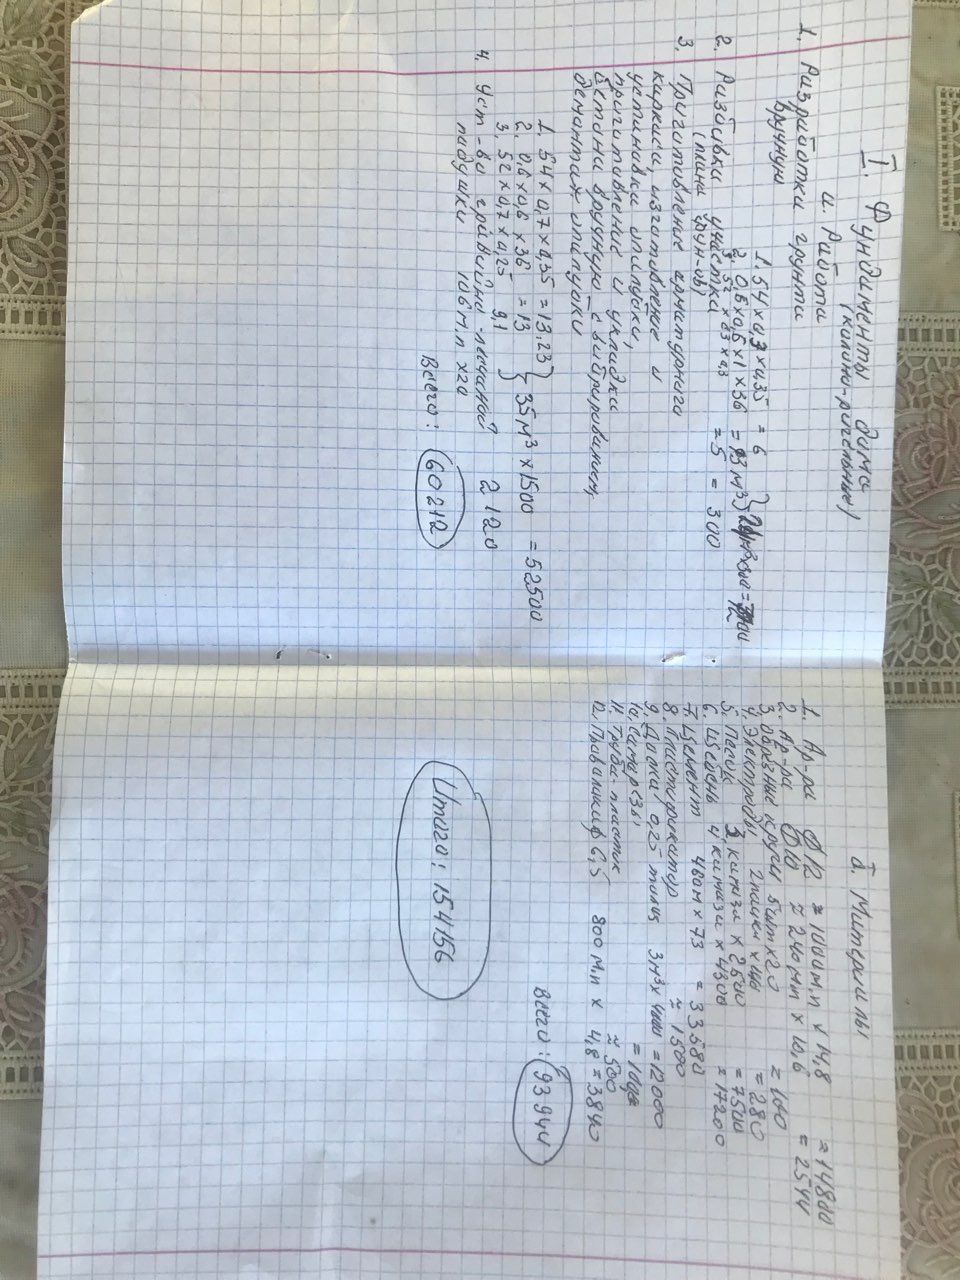 I. Фундаменты дома
(колонно-ригельные)
а. Работа
1. Разработка грунта
вручную
1. 54 х 0,3 х 0,35 = 6
2. 0,6 х 0,6 х 1 х 36 = 13 м³
3. 52 х 0,3 х 0,3 = 5
2. Разбивка участка = 300
(плана грунтов)
3. Приготовление арматурного
каркаса, изготовление и
установка опалубки,
приготовление и укладка
бетона вручную с вибрированием,
демонтаж опалубки
1. 54 х 0,7 х 0,35 = 13,23
2. 0,6 х 0,6 х 36 = 13 } 35 м³ х 1500 = 52500
3. 52 х 0,7 х 0,25 9,1
4. Уст-во гравийно-песчаной 2120
подушки 106 м.п х 20
Всего: 60212
б. Материалы
1. Ар-ра Ф12 ≈ 1000 м.п х 14,8 = 14800
2. Ар-ра Ф10 ≈ 240 мп х 10,6 = 2544
3. Обрезные круги 5шт х 20 = 100
4. Электроды 2 пачки х 140 = 280
5. Песок 3 камаза х 2500 = 7500
6. Щебень 4 камаза х 4300 = 17200
7. Цемент 460 м х 73 = 33580
8. Пластификатор ≈ 1500
9. Доска 0,25 толщ 3 м³ х 4000 = 12000
10. Саморезы
11. Труба пластик ≈ 500
12. Проволока ф 6,5 800 м.п х 4,8 = 3840
Всего: 93944
Итого: 154156